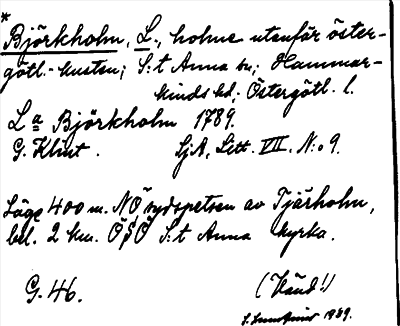 *
Björkholm, L., holme utenför öster-
götl.-kusten; S:t Anna sn; Hammar-
kinds hd; Östergötl. l.
La Björkholm 1789.
G. Klint. SjA, Litt. VII. N:o 9.
Läge 400 m. NÖ sydspetsen av Tjärholm,
bel. 2 km. ÖSÖ S:t Anna kyrka.
G. 46. (Vänd!)
1939.